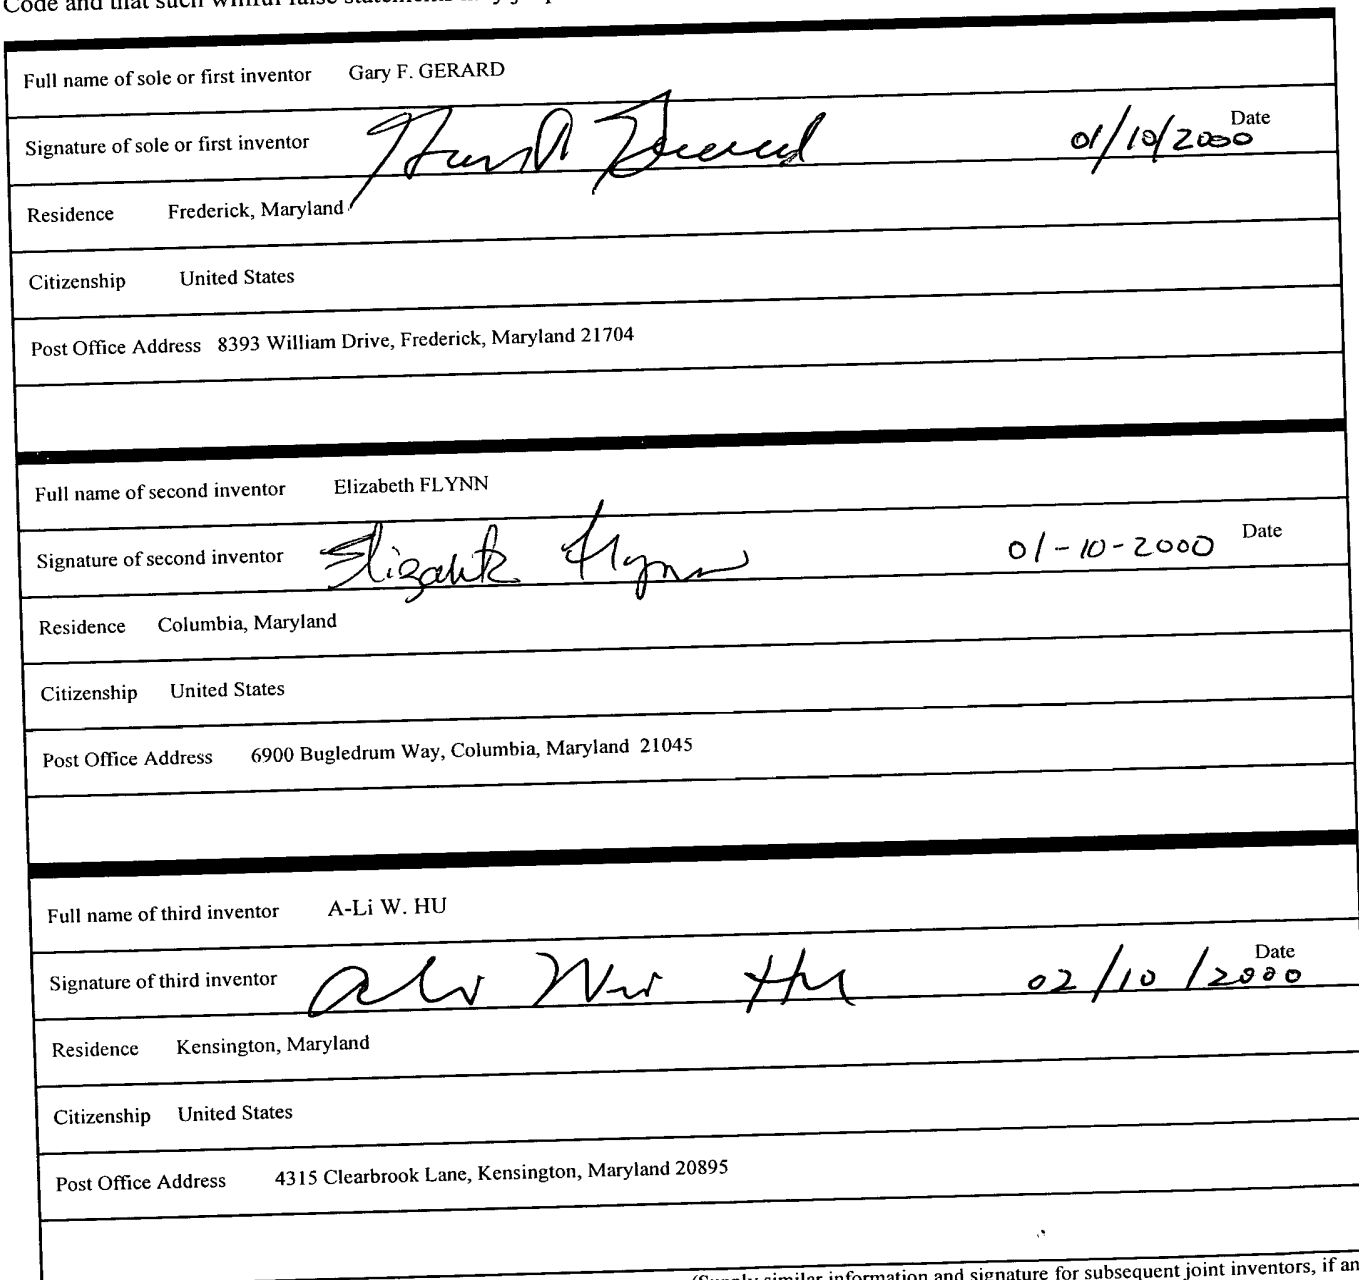 Code and that such willful false statements may
Full name of sole or first inventor Gary F. GERARD
Signature of sole or first inventor 01/10/2000 Date
Residence Frederick, Maryland
Citizenship United States
Post Office Address 8393 William Drive, Frederick, Maryland 21704
Full name of second inventor Elizabeth FLYNN
Signature of second inventor Elizabeth Flynn 01-10-2000 Date
Residence Columbia, Maryland
Citizenship United States
Post Office Address 6900 Bugledrum Way, Columbia, Maryland 21045
Full name of third inventor A-Li W. HU
Signature of third inventor 02/10/2000 Date
Residence Kensington, Maryland
Citizenship United States
Post Office Address 4315 Clearbrook Lane, Kensington, Maryland 20895
(Supply similar information and signature for subsequent joint inventors, if an